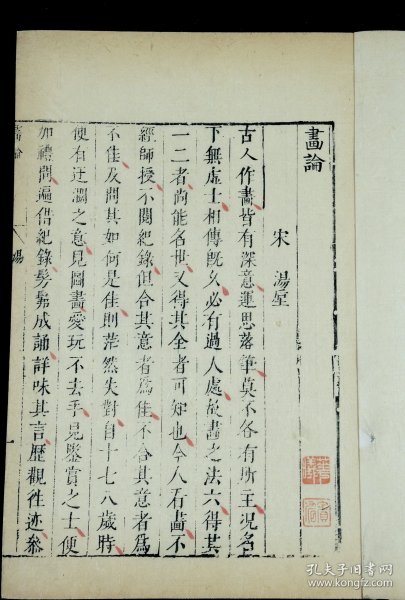 畫論
宋 湯垕
古人作畫皆有深意運思落筆莫不各有所主况名
下無虛士相傳既久必有過人處故畫之法六得其
一二者尚能名世又得其全者可知也今人看畫不
經師授不閱紀錄但合其意者爲佳不合其意者爲
不佳及問其如何是佳則茫然失對自十七八歲時
便有迂濶之意見圖畫愛玩不去手見鑒賞之士便
加禮問遍借紀錄髣髴成誦詳味其言歷觀徃迹參
畫論
孔夫子旧书网
www.kongfz.com